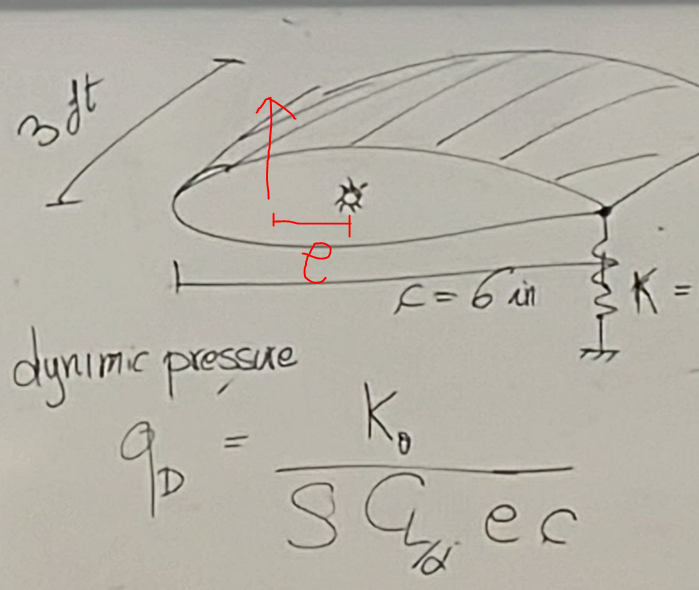 3 ft
e
c = 6 in
K =
dynimic pressure
q_D = K_θ / S C_L/α e c